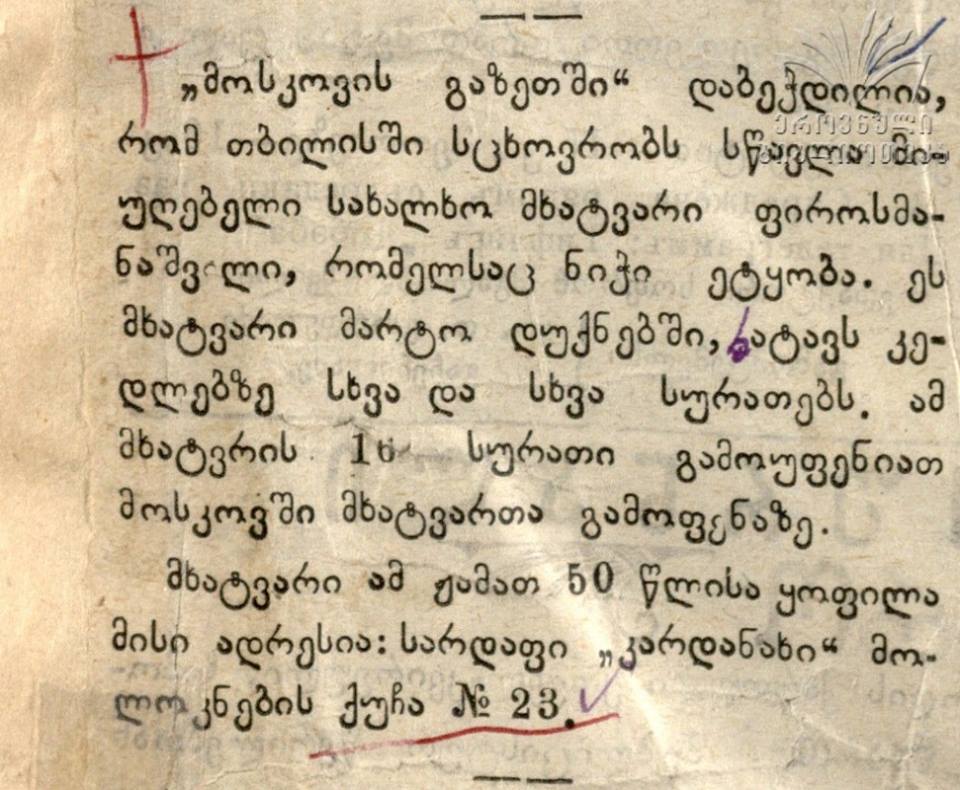 „მოსკოვის გაზეთში“ დაბეჭდილია,
რომ თბილისში სცხოვრობს სწავლა მი-
უღებელი სახალხო მხატვარი ფიროსმა-
ნაშვილი, რომელსაც ნიჭი ეტყობა. ეს
მხატვარი მარტო დუქნებში, ხატავს კე-
დლებზე სხვა და სხვა სურათებს. ამ
მხატვრის სურათი გამოუფენიათ
მოსკოვში მხატვართა გამოფენაზე.
მხატვარი ამ ჟამათ 50 წლისა ყოფილა
მისი ადრესია: სარდაფი „კარდანახი“ მო-
ლოკნების ქუჩა № 23.
ეროვნული
ბიბლიოთეკა